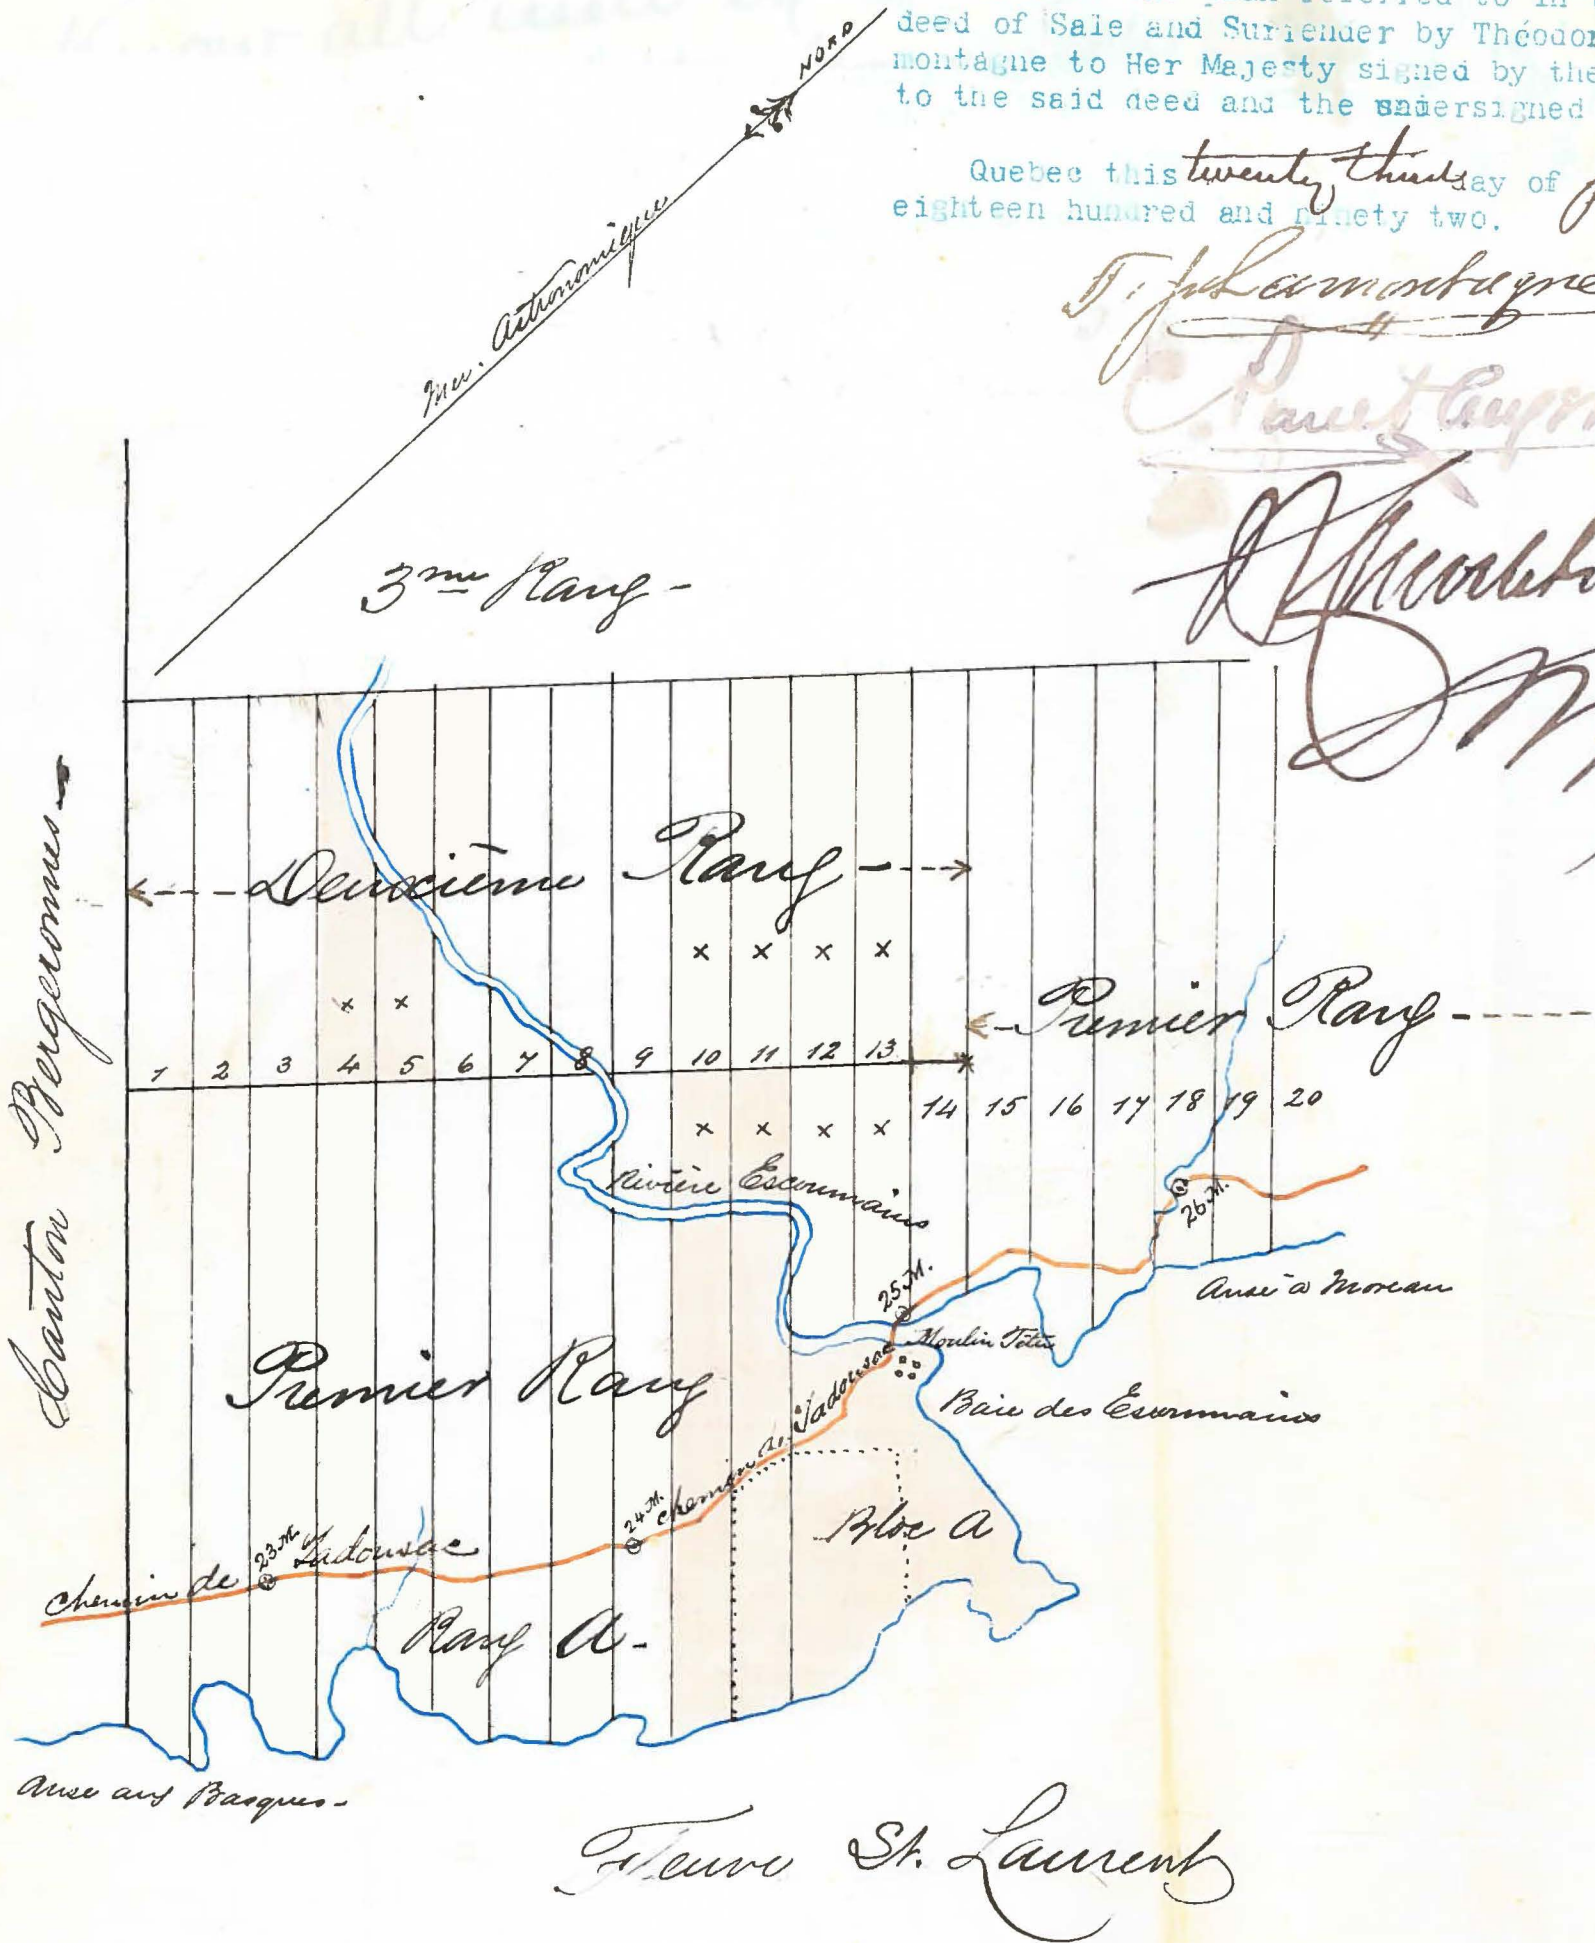 deed of Sale and Surrender by Théodor
montagne to Her Majesty signed by the
to the said deed and the undersigned
Quebec this twenty third day of
eighteen hundred and ninety two.
T. J. Lamontagne
NORD
Mer. Astronomique
3me Rang -
Canton Bergeronnes -
Deuxième Rang -
x x x x
x x
Premier Rang -
1 2 3 4 5 6 7 8 9 10 11 12 13
14 15 16 17 18 19 20
x x x x
Rivière Escoumains
26 M.
25 M.
Anse à Moreau
Moulin Têtu
Premier Rang
Baie des Escoumains
24 M. chemin de Tadousac
Bloc A
chemin de 23 M. Tadousac
Rang A -
Anse aux Basques -
Fleuve St. Laurent